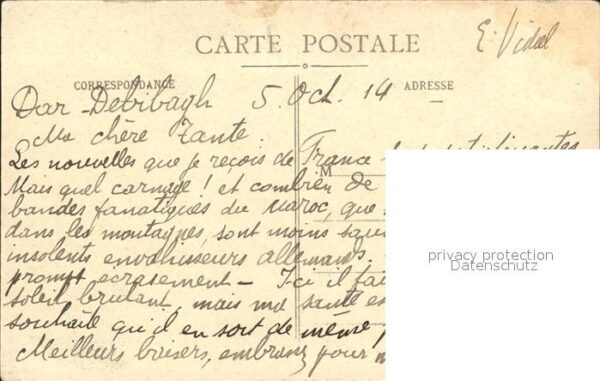 E. Vidal
CARTE POSTALE
CORRESPONDANCE
ADRESSE
Dar-Debibagh 5. Oct. 14
Ma chère Tante.
Les nouvelles que je reçois de France
M
Mais quel carnage! et combien de
bandes fanatiques du Maroc, que
dans les montagnes, sont moins
insolents envahisseurs allemands.
prompt écrasement - Ici il fai
soleil brulant, mais ma santé es
souhaite qu'il en soit de même
Meilleurs baisers, embrassez pour
privacy protection
Datenschutz